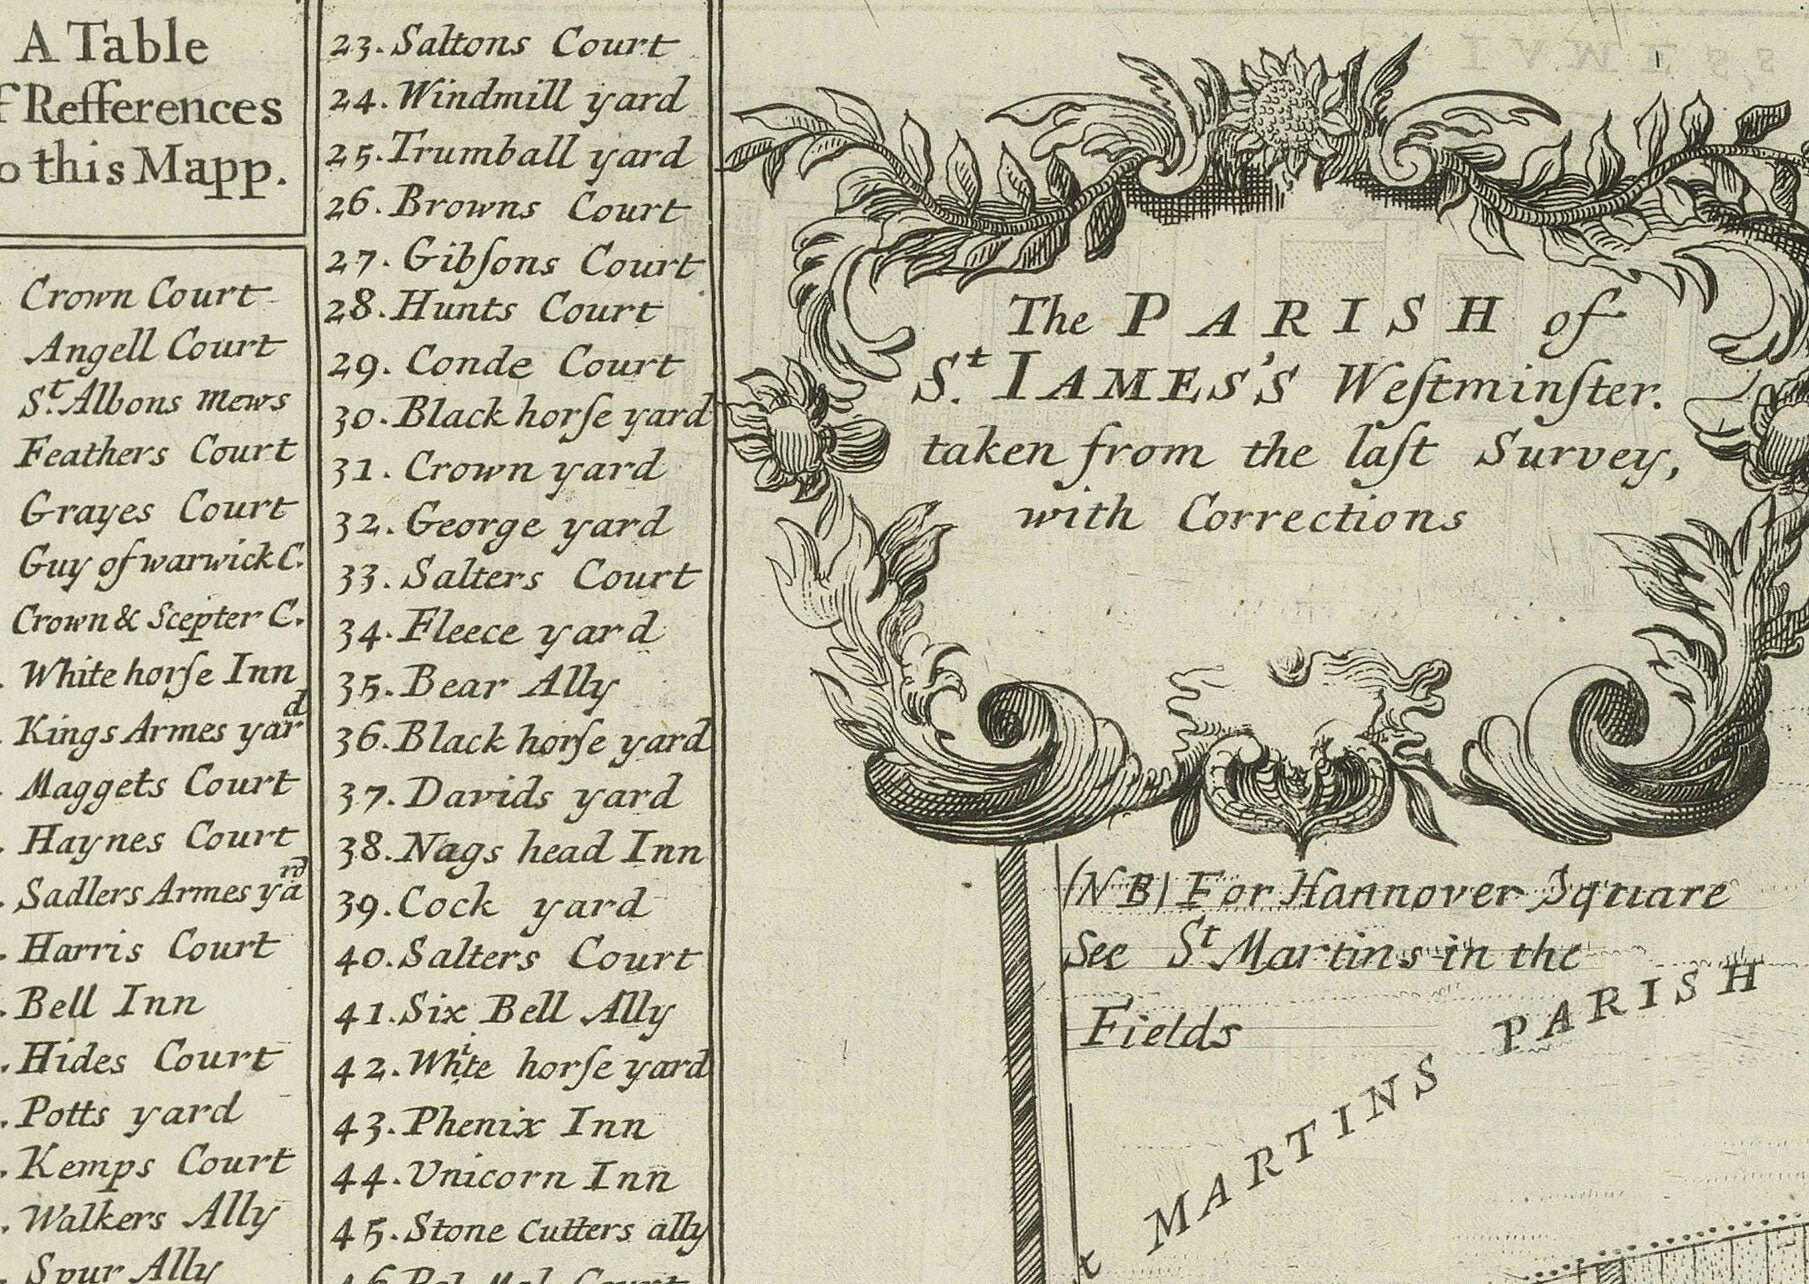 A Table
Refferences
this Mapp.
Crown Court
Angell Court
St. Albons mews
Feathers Court
Grayes Court
Guy of warwick C.
Crown & Scepter C.
White horſe Inn
Kings Armes yard
Maggets Court
Haynes Court
Sadlers Armes yard
Harris Court
Bell Inn
Hides Court
Potts yard
Kemps Court
Walkers Ally
Spur Ally
23. Saltons Court
24. Windmill yard
25. Trumball yard
26. Browns Court
27. Gibſons Court
28. Hunts Court
29. Conde Court
30. Black horſe yard
31. Crown yard
32. George yard
33. Salters Court
34. Fleece yard
35. Bear Ally
36. Black horſe yard
37. Davids yard
38. Nags head Inn
39. Cock yard
40. Salters Court
41. Six Bell Ally
42. White horſe yard
43. Phenix Inn
44. Unicorn Inn
45. Stone Cutters ally
The PARISH of
St. IAMES'S Weſtminſter.
taken from the laſt Survey,
with Corrections
(NB) For Hannover Square
See St Martins in the
Fields
MARTINS PARISH